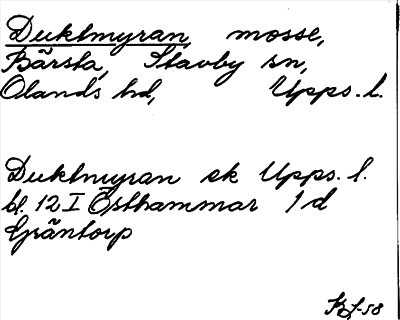 Duktmyran, mosse,
Bärsta, Stavby sn,
Olands hd, Upps. l.
Duktmyran ek Upps. l.
bl. 12 I Östhammar 1 d
Gräntorp